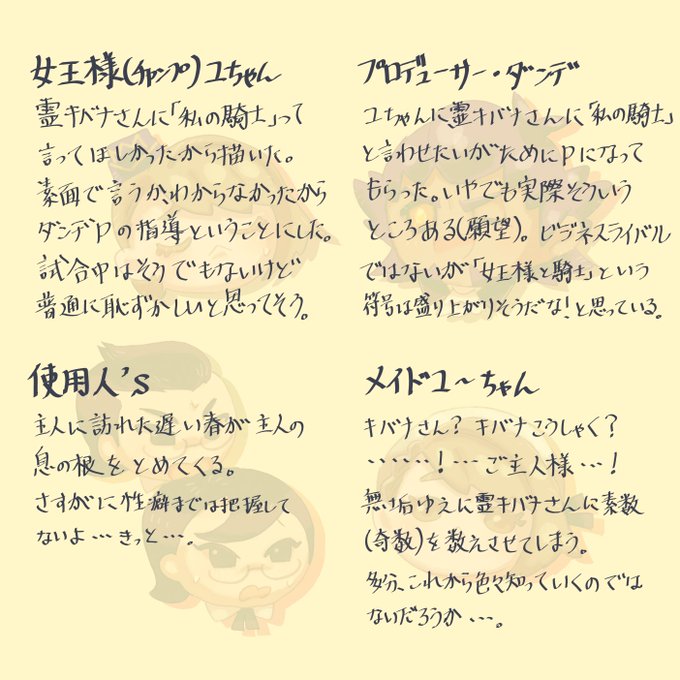 女王様(チャンプ)ユちゃん
霊キバナさんに「私の騎士」って
言ってほしかったから描いた。
素面で言うか、わからなかったから
ダンデPの指導ということにした。
試合中はそうでもないけど
普通に恥ずかしいと思ってそう。
プロデューサー・ダンデ
ユちゃんに霊キバナさんに「私の騎士」
と言わせたいがためにPになって
もらった。いやでも実際そういう
ところある(願望)。ビジネスライバル
ではないが「女王様と騎士」という
符号は盛り上がりそうだな!と思っている。
使用人's
主人に訪れた遅い春が主人の
息の根をとめてくる。
さすがに性癖までは把握して
ないよ…きっと…。
メイドユ~ちゃん
キバナさん?キバナこうしゃく?
……!…ご主人様…!
無垢ゆえに霊キバナさんに素数
(奇数)を数えさせてしまう。
多分、これから色々知っていくのでは
ないだろうか…。